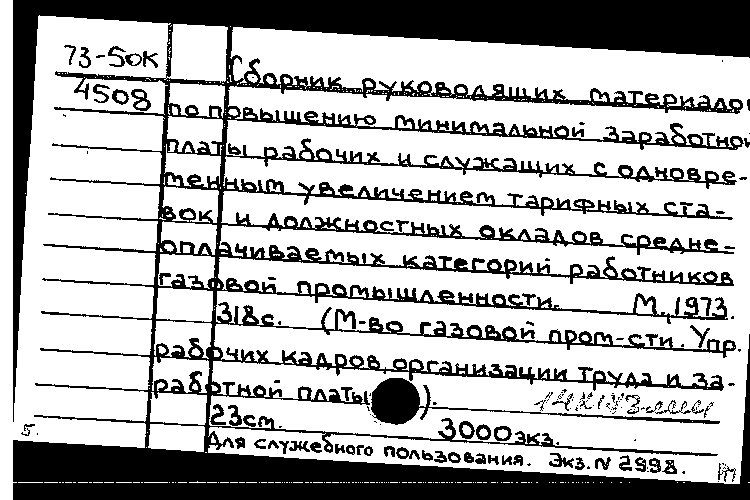 73-50К
Сборник руководящих материало
4508 по повышению минимальной заработно
платы рабочих и служащих с одновре-
менным увеличением тарифных ста-
вок и должностных окладов средне=
оплачиваемых категорий работников
газовой промышленности. М.,1973.
318с. (М-во газовой пром-сти. Упр.
рабочих кадров, организации труда и за-
работной платы ).
23см. 3000экз.
Для служебного пользования. Экз. N 2998.
5.